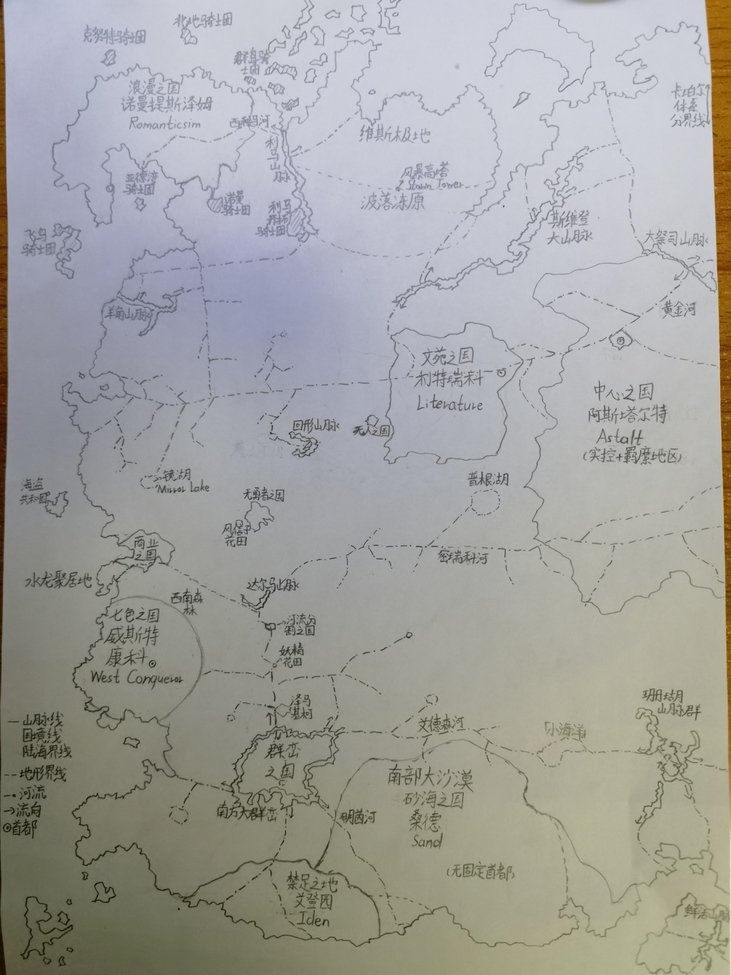 北地骑士团
克努特骑士团
群岛骑
士团
浪漫之国
诺曼提斯泽姆
Romanticsim
西利马河
利马山脉
维斯极地
卡珀尔
体系
分界线
亚德湾
骑士团
诺曼
骑士团
利马
养场
骑士团
风暴高塔
Storm Tower
波落冻原
飞鸟
骑士团
斯维登
大山脉
大祭司山脉
羊角山脉
黄金河
文苑之国
利特瑞科
Literature
中心之国
阿斯塔尔特
Astalt
(实控+羁縻地区)
回形山脉
无人之国
镜湖
Mirror Lake
普根湖
海盗
共和国
无勇者之国
风信子
花田
商业
之国
密瑞科河
水龙聚居地
达尔马山脉
西南森
林
七色之国
威斯特
康科
West Conqueror
河流向
倒之国
妖精
花田
泽马
湛树
珊瑚月
山脉群
艾德森河
「小海洋」
群峦
之国
南部大沙漠
砂海之国
桑德
Sand
(无固定首都)
南方大群峦
明茵河
禁足之地
艾登园
Iden
— 山脉线
国境线
陆海界线
--地形界线
-·河流
→流向
⊙首都